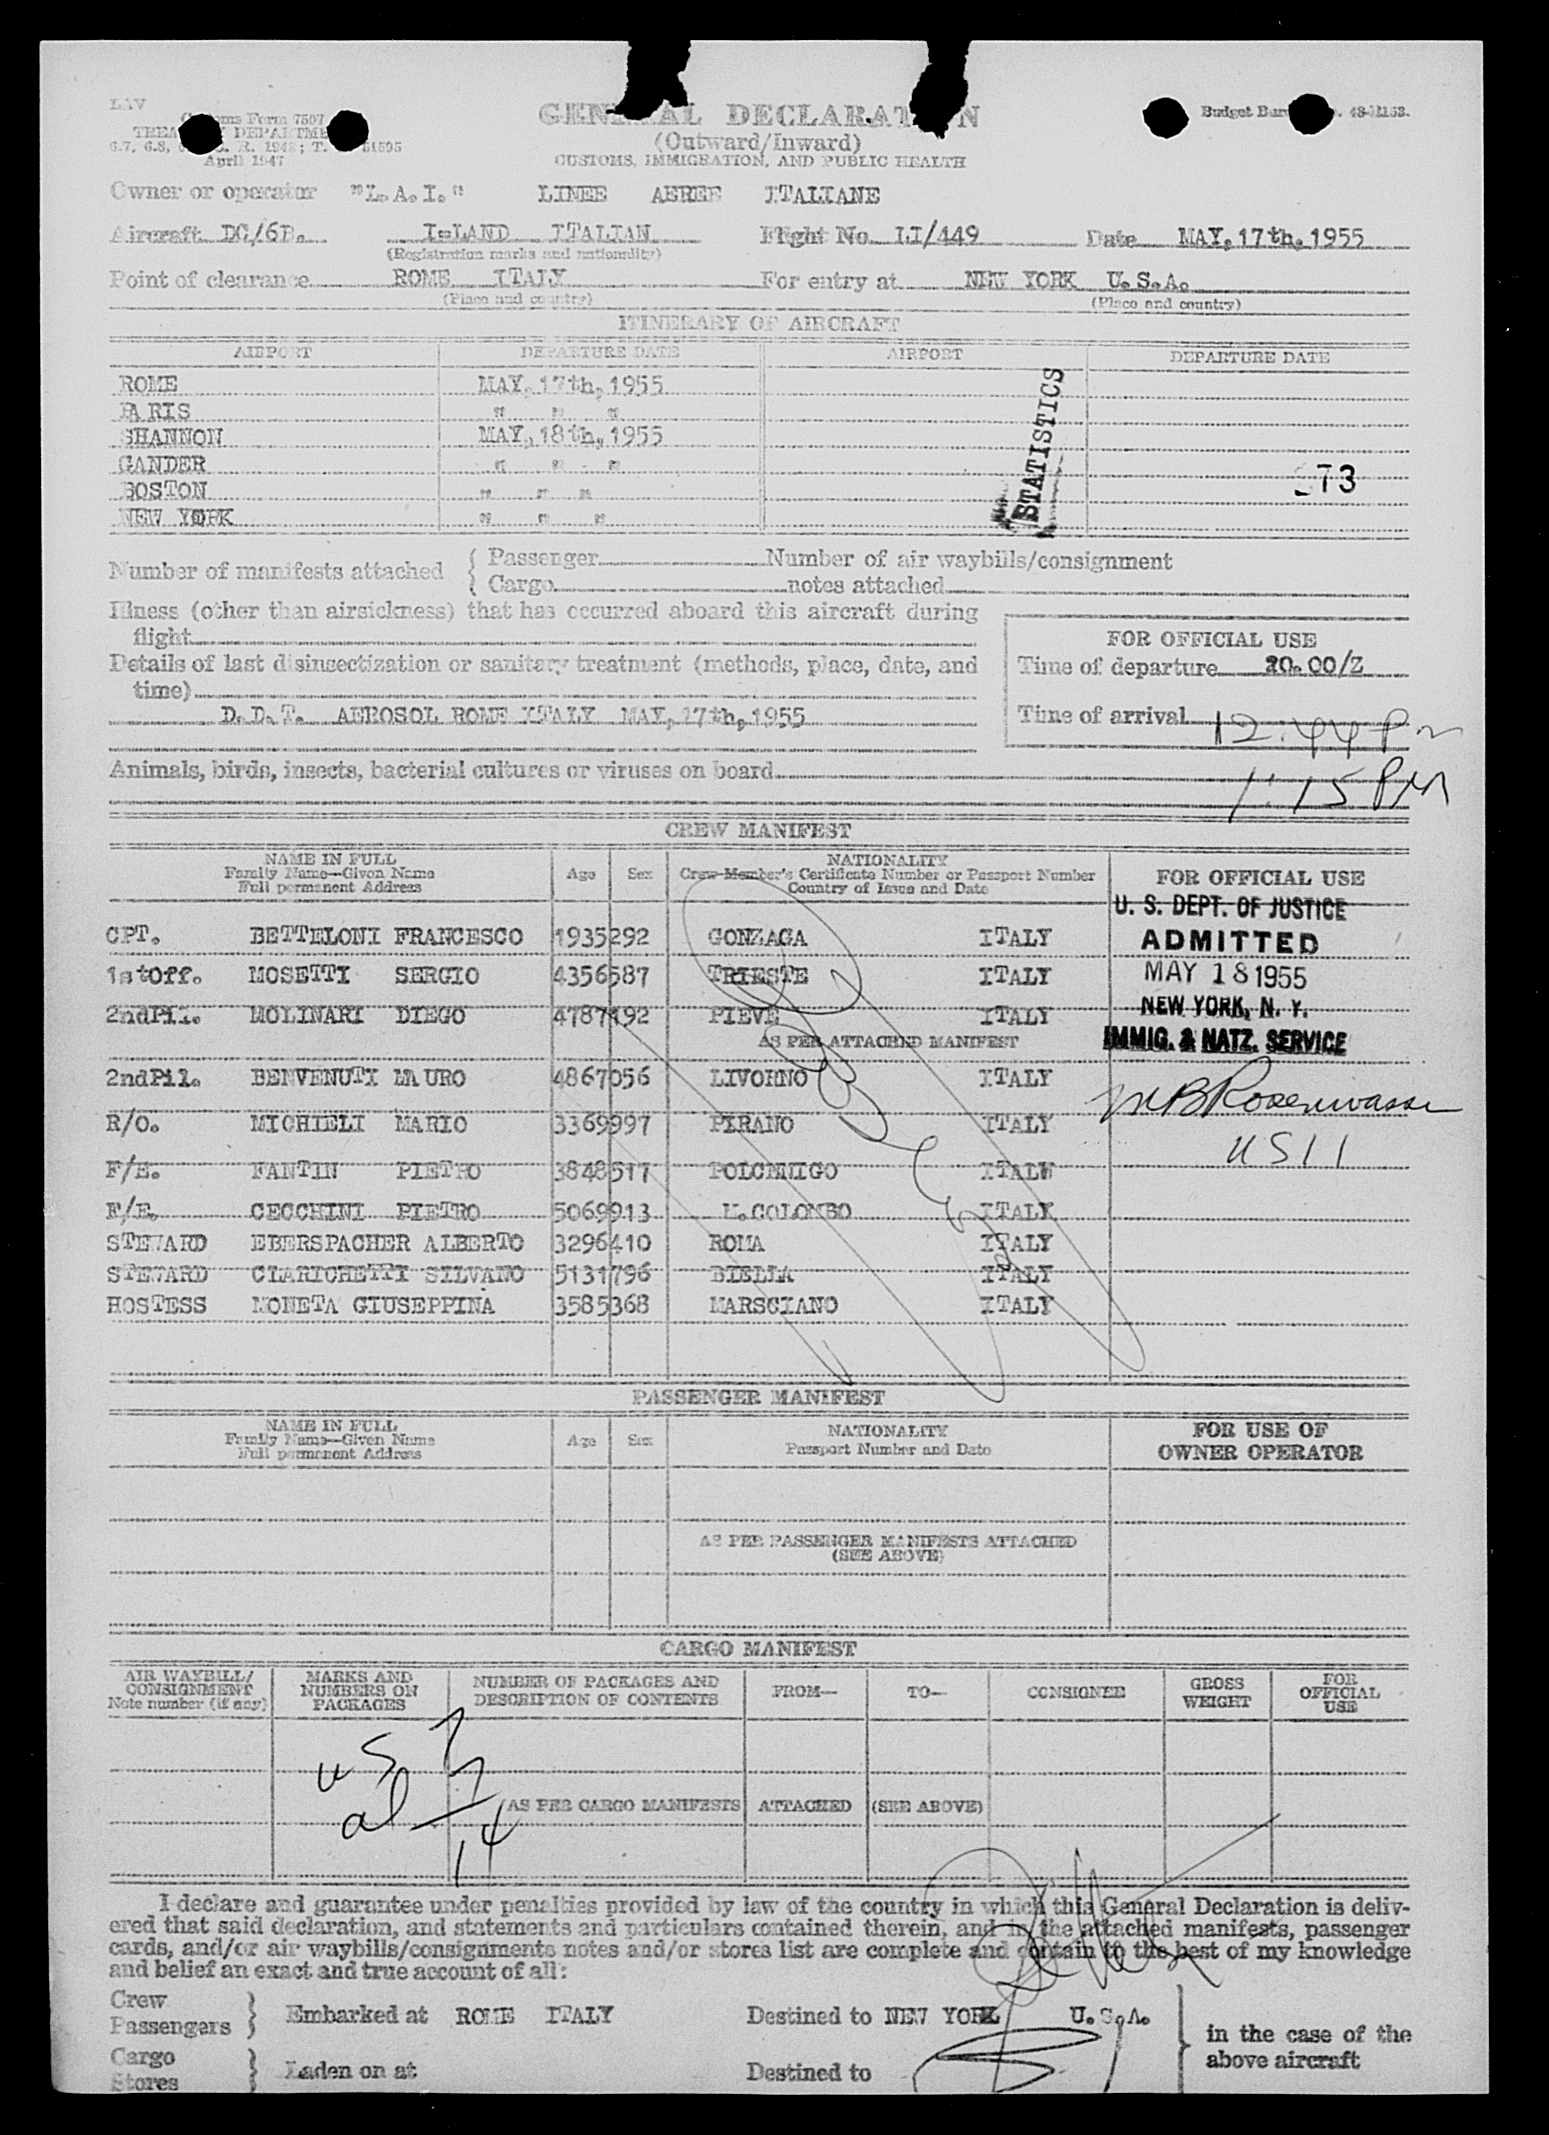 LAV
Customs Form 7507
TREASURY DEPARTMENT
6.7, 6.8, R. 1948; T. 51595
April 1947
GENERAL DECLARATION
(Outward/Inward)
CUSTOMS, IMMIGRATION, AND PUBLIC HEALTH
Budget Bureau No. 48-R153.
Owner or operator "L.A.I." LINEE AEREE ITALIANE
Aircraft DC/6B. I=LAND ITALIAN Flight No. LI/449 Date MAY,17th,1955
(Registration marks and nationality)
Point of clearance ROME ITALY For entry at NEW YORK U.S.A.
(Place and country) (Place and country)
ITINERARY OF AIRCRAFT
AIRPORT DEPARTURE DATE AIRPORT DEPARTURE DATE
ROME MAY,17th,1955
PARIS " " "
SHANNON MAY,18th,1955
GANDER " " "
BOSTON " " "
NEW YORK " " "
STATISTICS
73
Number of manifests attached { Passenger Number of air waybills/consignment
Cargo notes attached
Illness (other than airsickness) that has occurred aboard this aircraft during
flight
Details of last disinsectization or sanitary treatment (methods, place, date, and
time)
D.D.T. AEROSOL ROME ITALY MAY,17th,1955
FOR OFFICIAL USE
Time of departure 20.00/Z
Time of arrival 12:44 Pm
1:15 PM
Animals, birds, insects, bacterial cultures or viruses on board
CREW MANIFEST
NAME IN FULL
Family Name—Given Name
Full permanent Address
Age Sex
NATIONALITY
Crew Member's Certificate Number or Passport Number
Country of Issue and Date
FOR OFFICIAL USE
U. S. DEPT. OF JUSTICE
ADMITTED
MAY 18 1955
NEW YORK, N. Y.
IMMIG. & NATZ. SERVICE
CPT. BETTELONI FRANCESCO 1935292 GONZAGA ITALY
1stOff. MOSETTI SERGIO 4356587 TRIESTE ITALY
2ndPil. MOLINARI DIEGO 4787192 PIEVE ITALY
AS PER ATTACHED MANIFEST
2ndPil. BENVENUTI MAURO 4867056 LIVORNO ITALY
R/O. MICHIELI MARIO 3369997 PIRANO ITALY
F/E. FANTIN PIETRO 3848517 POLCENIGO ITALY
F/E. CECCHINI PIETRO 5069913 M.COLOMBO ITALY
STEWARD EBERSPACHER ALBERTO 3296410 ROMA ITALY
STEWARD CLARICHETTI SILVANO 5131796 BIELLA ITALY
HOSTESS MONETA GIUSEPPINA 3585368 MARSCIANO ITALY
MB Rosenwasser
USII
PASSENGER MANIFEST
NAME IN FULL
Family Name—Given Name
Full permanent Address
Age Sex
NATIONALITY
Passport Number and Date
FOR USE OF
OWNER OPERATOR
AS PER PASSENGER MANIFESTS ATTACHED
(SEE ABOVE)
CARGO MANIFEST
AIR WAYBILL/
CONSIGNMENT
Note number (if any)
MARKS AND
NUMBERS ON
PACKAGES
NUMBER OF PACKAGES AND
DESCRIPTION OF CONTENTS
FROM— TO— CONSIGNEE
GROSS
WEIGHT
FOR
OFFICIAL
USE
us 7
al 7
14
(AS PER CARGO MANIFESTS ATTACHED (SEE ABOVE)
I declare and guarantee under penalties provided by law of the country in which this General Declaration is deliv-
ered that said declaration, and statements and particulars contained therein, and in the attached manifests, passenger
cards, and/or air waybills/consignments notes and/or stores list are complete and contain to the best of my knowledge
and belief an exact and true account of all:
Crew
Passengers } Embarked at ROME ITALY Destined to NEW YORK U.S.A.
Cargo
Stores } Laden on at Destined to
in the case of the
above aircraft